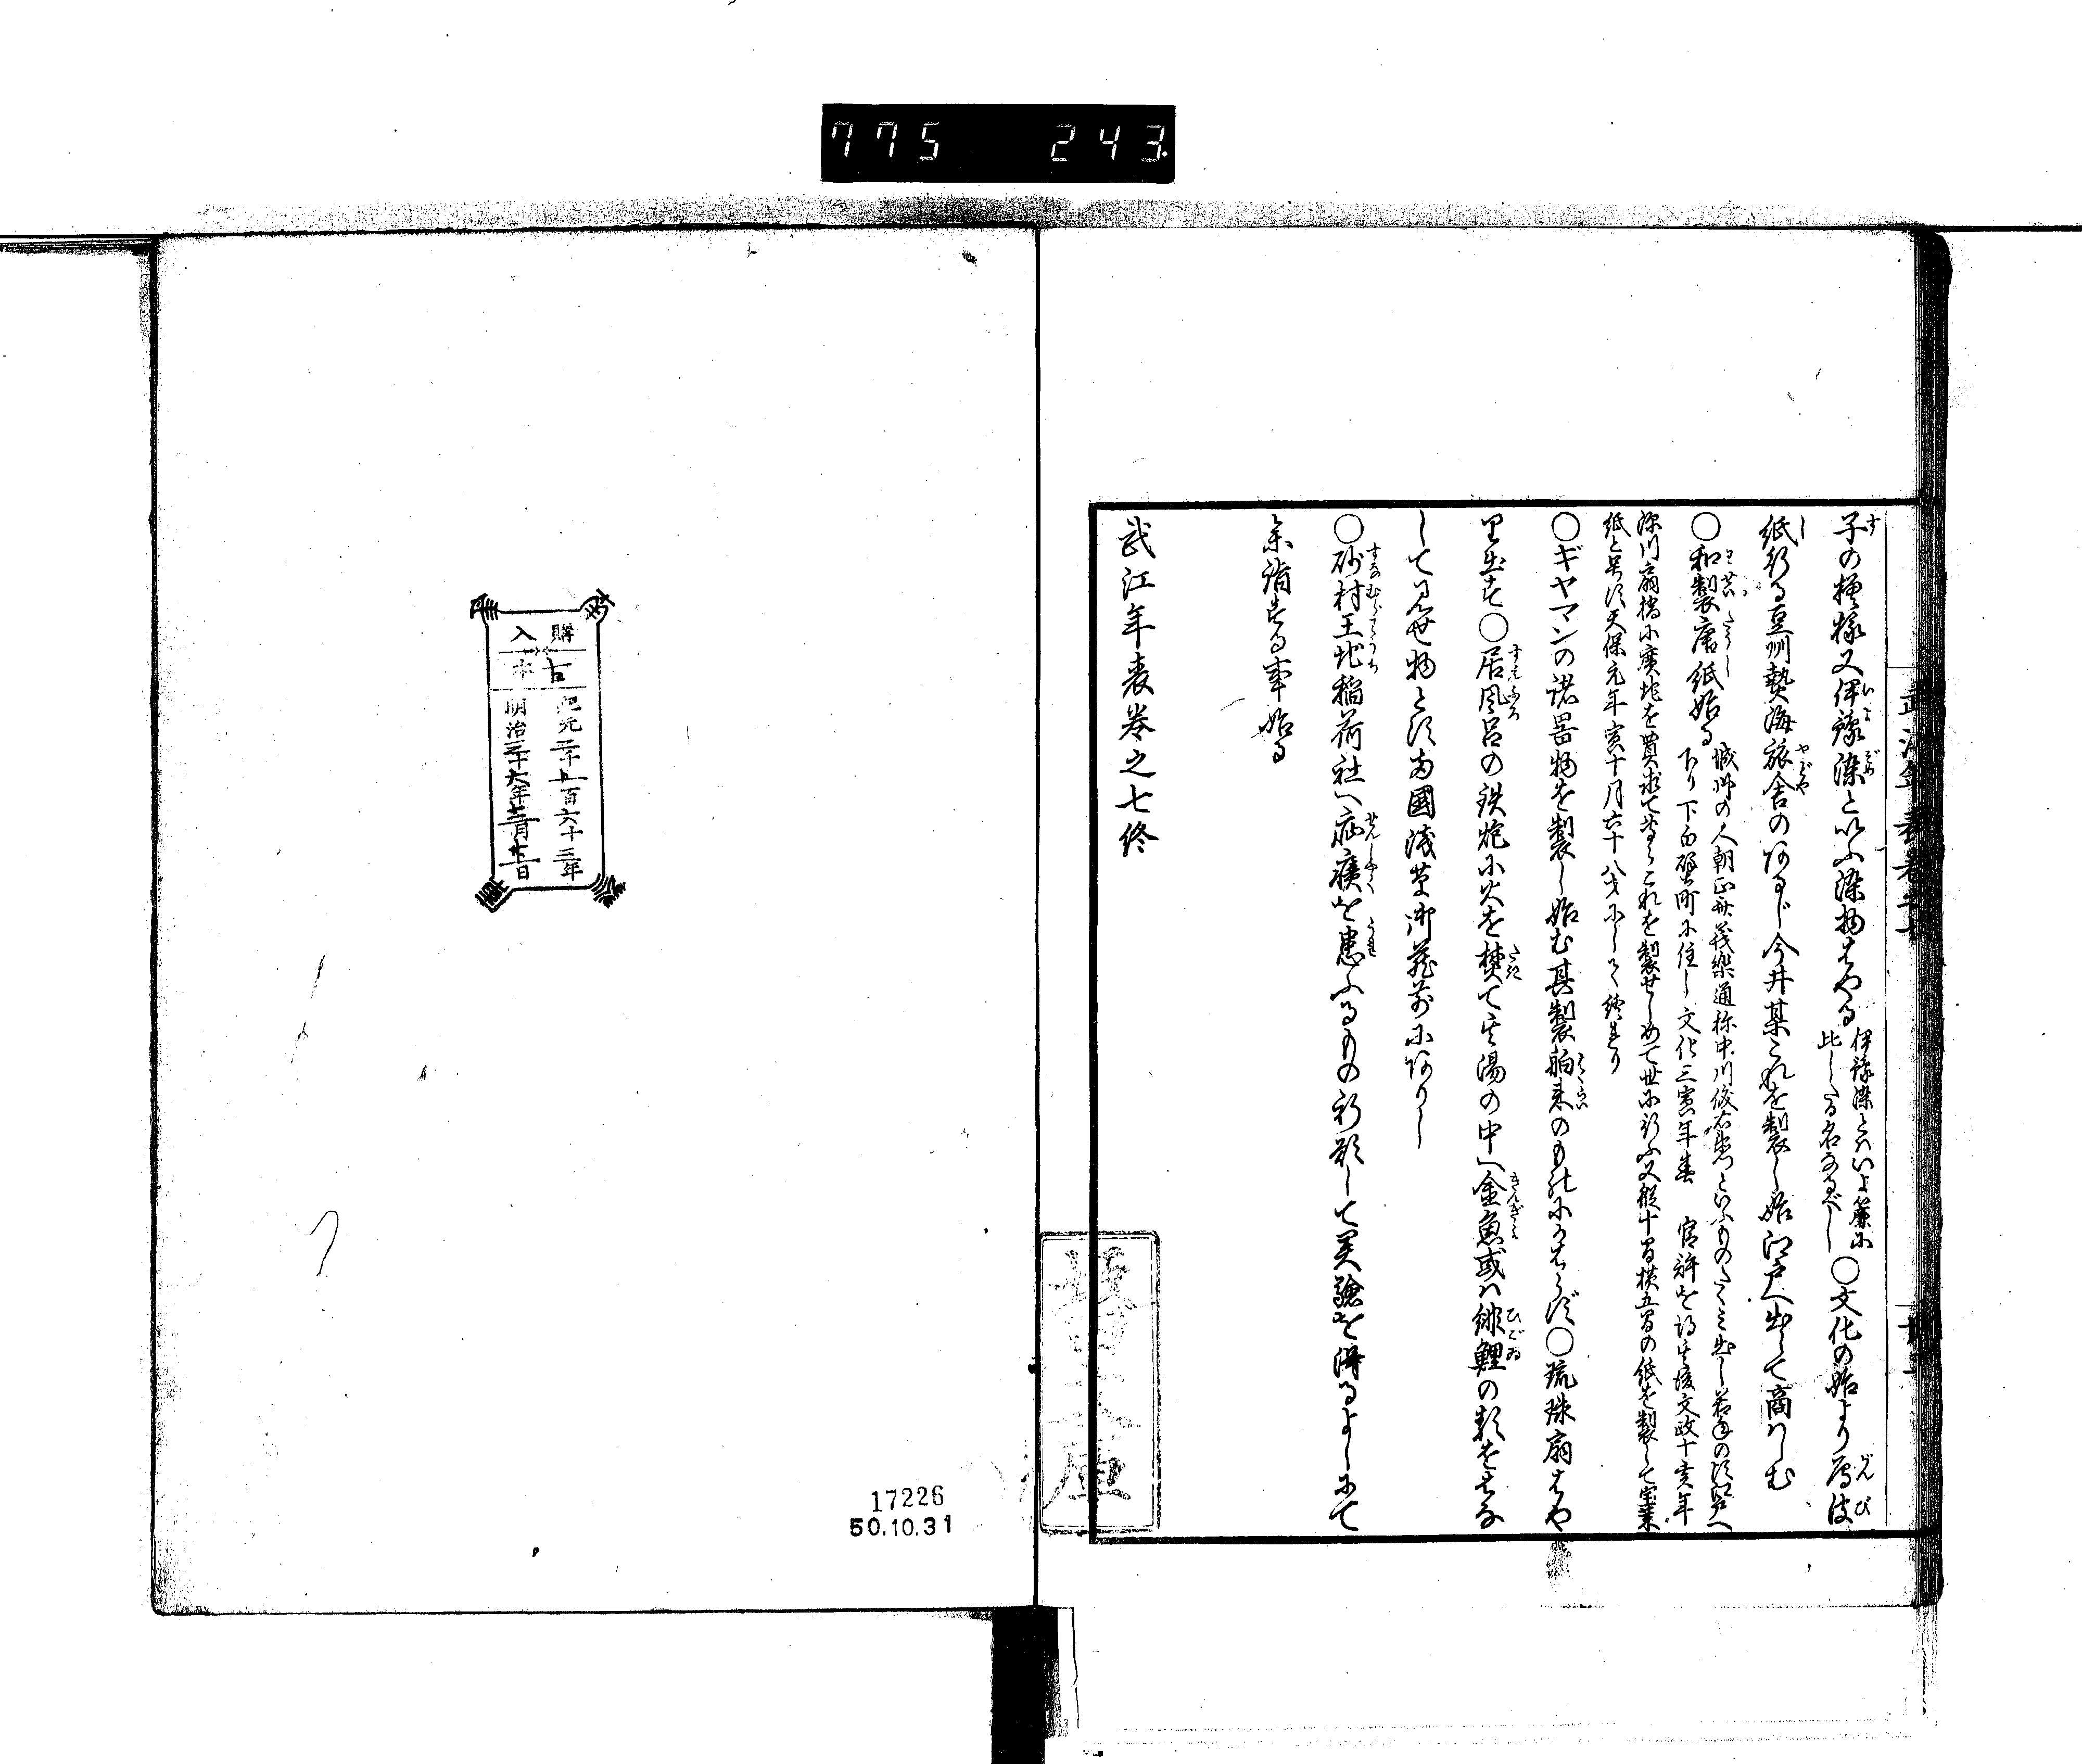 775 243.
子の模様又伊豫染といふ染物はやる 伊豫染とはいよ簾に
比したる名なるべし ○文化の始より雁皮
紙行る豆州熱海旅舎のあるじ今井某これを製し始江戸へ出して商はしむ
○和製唐紙始る 城州の人朝正無茂樂通称中川儀右衛門といふものたくみ出し若年の頃江戸へ
下り下白壁町に住し文化三寅年春 官許を得其後文政十亥年
深川扇橋に廣地を買求てこれを製せしめて世に行ふ又縦十間横五間の紙を製して宝業
紙と号す天保元年寅十月六十八才にして終れり
○ギヤマンの諸器物を製し始む其製舶来のものにかはらず○硫珠扇はや
り出す○居風呂の鉄炮に火を焚て其湯の中へ金魚或は緋鯉の類をはな
して見せ物とす両國浅草御蔵前にありし
○砂村王地稲荷社へ疝癪を患ふるもの祈願して美驗を得るよしにて
参詣する事始る
武江年表巻之七終
武江年表巻之七
購入
古本
紀元二千五百六十三年
明治三十六年
17226
50.10.31